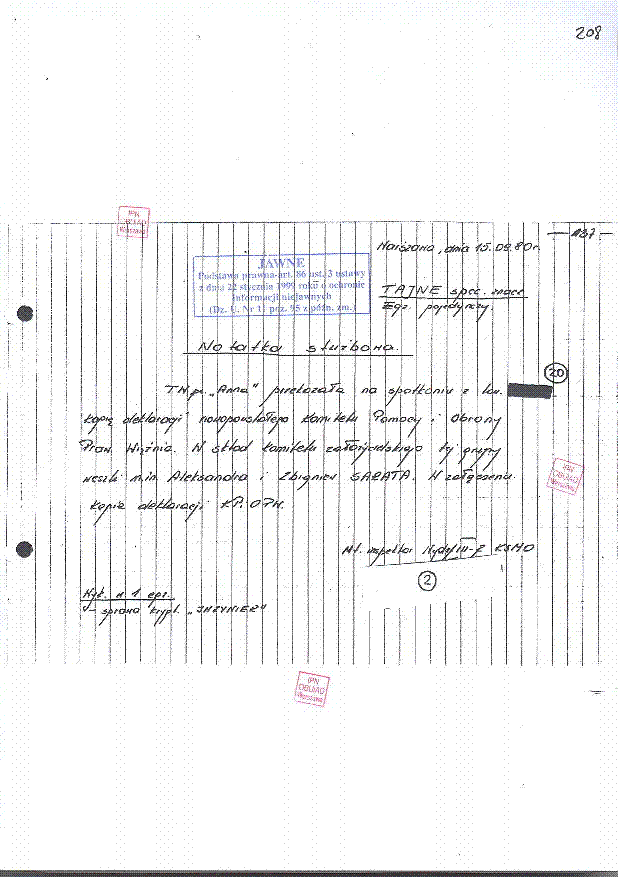 208
— 187 —
IPN
OBUiAD
Warszawa
Warszawa, dnia 15.09.80r.
JAWNE
Podstawa prawna-art. 86 ust. 3 ustawy
z dnia 22 stycznia 1999 roku o ochronie
informacji niejawnych
(Dz. U. Nr 11 poz. 95 z późn. zm.)
TAJNE spec. znacz
Egz. pojedynczy.
Notatka służbowa.
20
TW ps. „Anna” przekazała na spotkaniu z tow.
kopię deklaracji nowopowstałego Komitetu Pomocy i Obrony
Praw. Więźnia. W skład komitetu założycielskiego tej grupy
weszli m.in. Aleksandra i Zbigniew SARATA. W załączeniu
IPN
OBUiAD
Warszawa
kopia deklaracji KP.OPW.
Mł. inspektor Wydz III-2 KSMO
2
Wyk. w 1 egz.
- sprawa krypt. „INŻYNIER”
IPN
OBUiAD
Warszawa